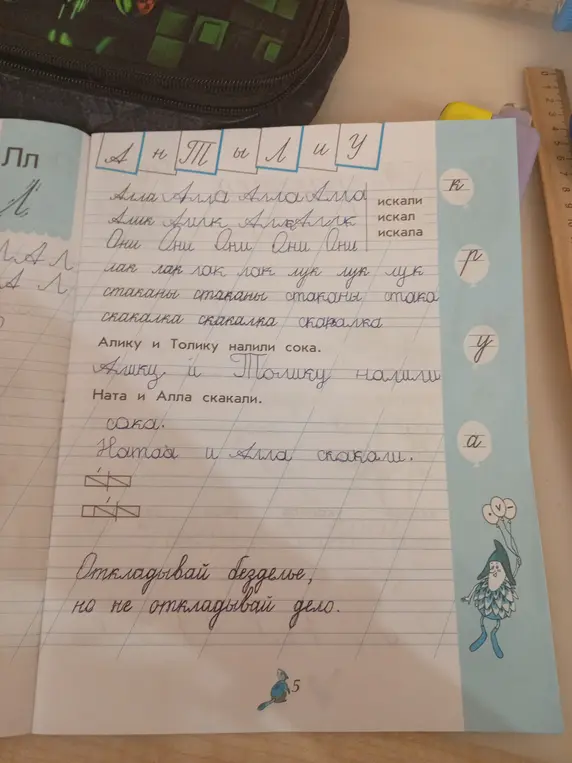 Лл
Л
А н Т ы Л и У
Алла Алла Алла Алла
искали
Алик Алик Алик Алик
искал
искала
Они Они Они Они Они
лак лак лак лак лук лук лук
стаканы стаканы стаканы стака
скакалка скакалка скакалка
Алику и Толику налили сока.
Алику и Толику налили
Ната и Алла скакали.
сока.
Ната и Алла скакали.
Откладывай безделье,
но не откладывай дело.
5
к
р
у
а